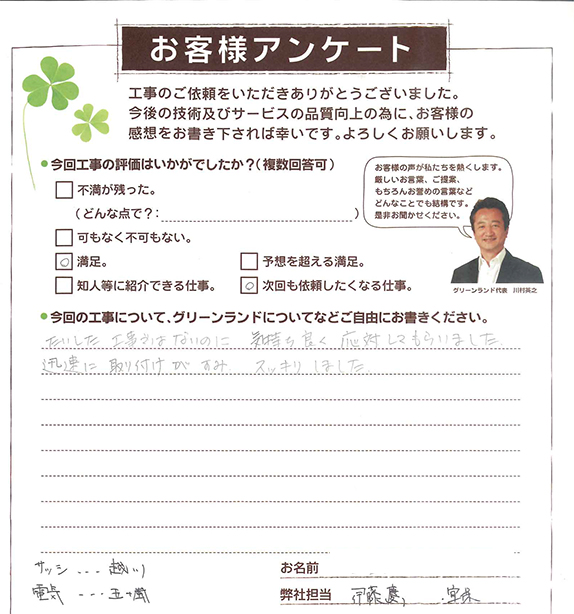 お客様アンケート
工事のご依頼をいただきありがとうございました。
今後の技術及びサービスの品質向上の為に、お客様の
感想をお書き下されば幸いです。よろしくお願いします。
●今回工事の評価はいかがでしたか?(複数回答可)
不満が残った。
(どんな点で?: )
可もなく不可もない。
満足。 予想を超える満足。
知人等に紹介できる仕事。 次回も依頼したくなる仕事。
お客様の声が私たちを熱くします。
厳しいお言葉、ご提案、
もちろんお誉めの言葉など
どんなことでも結構です。
是非お聞かせください。
グリーンランド代表 川村英之
●今回の工事について、グリーンランドについてなどご自由にお書きください。
たいした工事ではないのに 気持ち良く 応対してもらいました
迅速に 取り付けが すみ スッキリ しました
サッシ ... 越川
電気 ... 五十嵐
お名前
弊社担当 伊藤